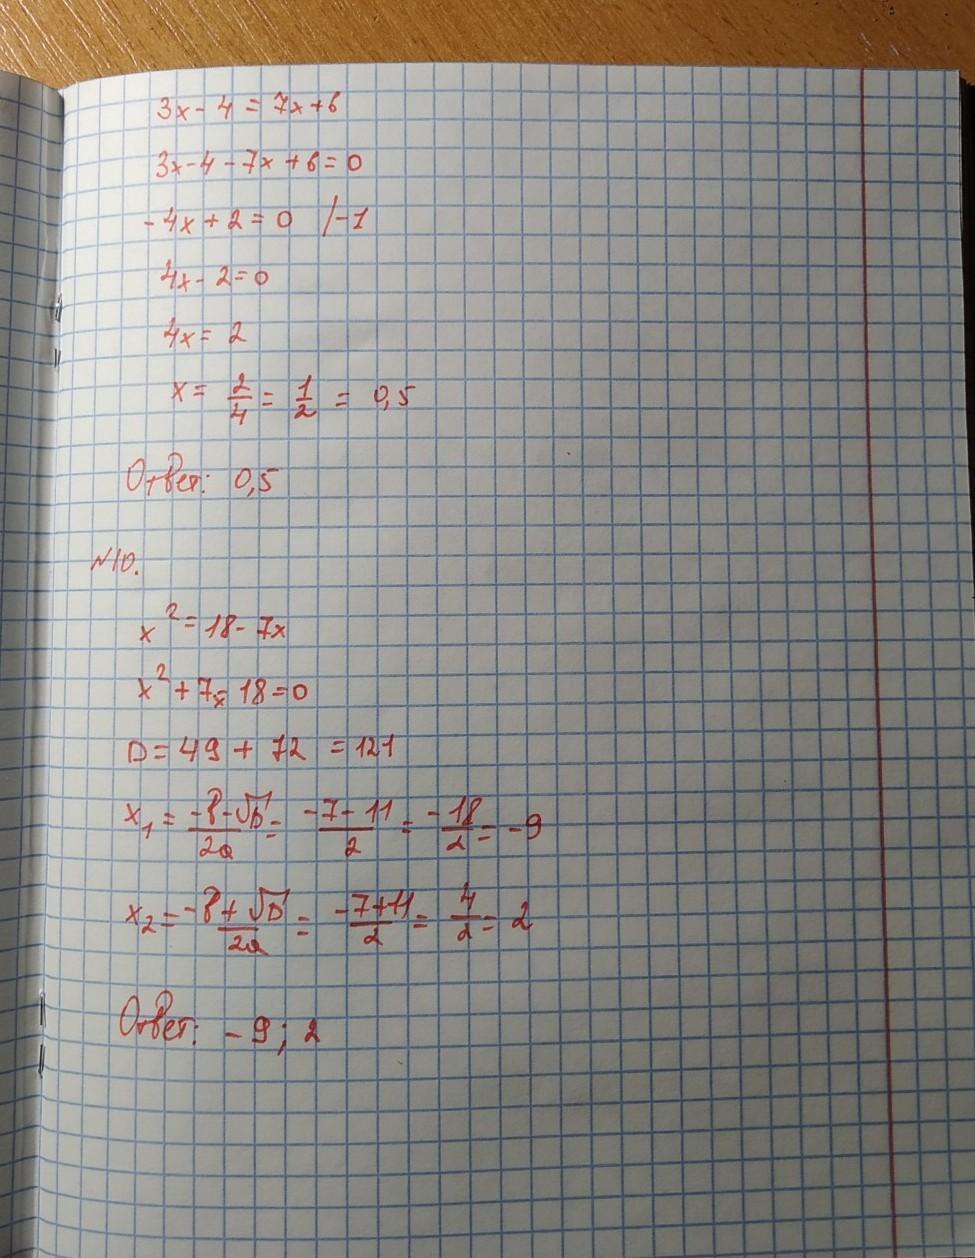 3x - 4 = 7x + 6
3x - 4 - 7x + 6 = 0
- 4x + 2 = 0 /-1
4x - 2 = 0
4x = 2
x = 2/4 = 1/2 = 0,5
Ответ: 0,5
N10.
x² = 18 - 7x
x² + 7x - 18 = 0
D = 49 + 72 = 121
x₁ = (-b - √D)/2a = (-7 - 11)/2 = -18/2 = -9
x₂ = (-b + √D)/2a = (-7 + 11)/2 = 4/2 = 2
Ответ: - 9; 2